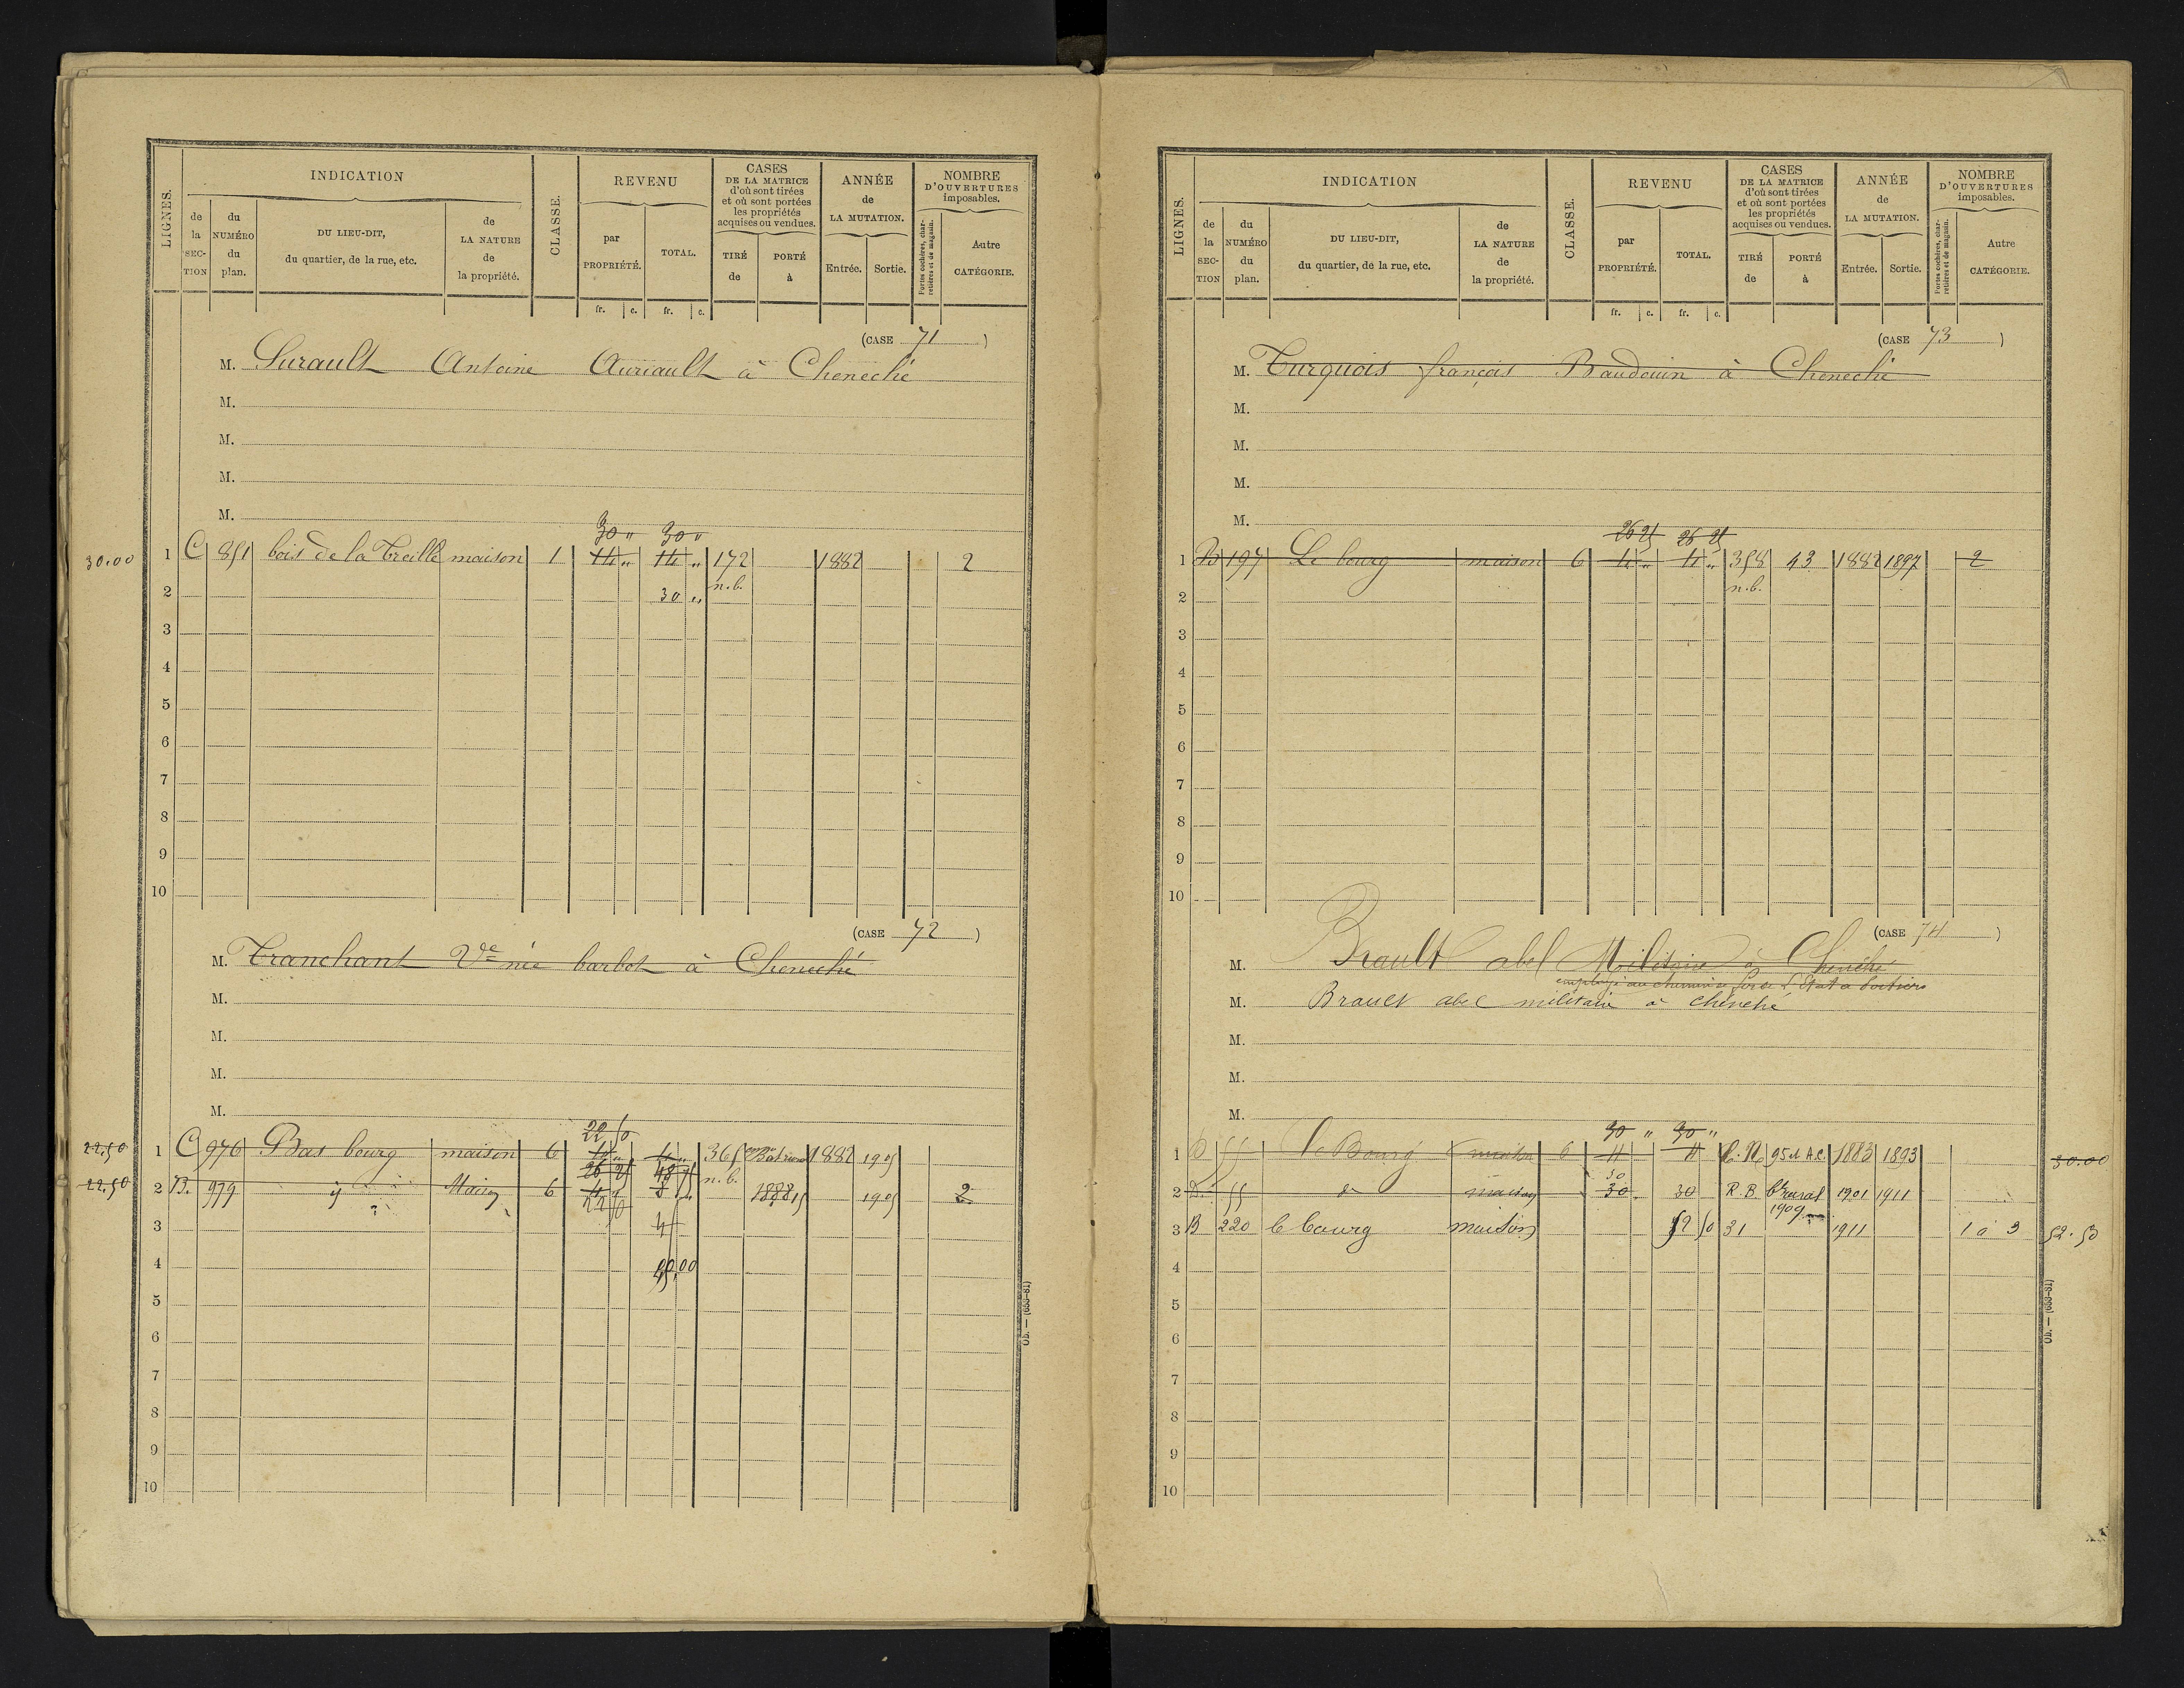 LIGNES.
INDICATION
de la SECTION
du NUMÉRO du plan.
DU LIEU-DIT, du quartier, de la rue, etc.
de LA NATURE de la propriété.
CLASSE.
REVENU
par PROPRIÉTÉ.
TOTAL.
CASES DE LA MATRICE d'où sont tirées et où sont portées les propriétés acquises ou vendues.
TIRÉ de
PORTÉ à
ANNÉE de LA MUTATION.
Entrée.
Sortie.
NOMBRE D'OUVERTURES imposables.
Portes cochères, charretières et de magasin.
Autre CATÉGORIE.
fr. c. fr. c.
(CASE 71)
M. Surault Antoine Auriault à Cheneché
M.
M.
M.
M.
30 " 30 "
30.00 1 C 851 bois de la Treille maison 1 14 " 14 " 172 1882 2
2 30 " n.b.
3
4
5
6
7
8
9
10
(CASE 72)
M. Tranchant Vve née barbot à Cheneché
M.
M.
M.
M.
22 50
22,50 1 C 976 Bas bourg maison 6 4 " 4 " 365 1882 1905
26 25 48 75 n.b.
22,50 2 B. 979 y Maison 6 4 " 8 " 1888 1905 2
22 50
3 45
4
5
6
7
8
9
10
Ob. — (653-81)
LIGNES.
INDICATION
de la SECTION
du NUMÉRO du plan.
DU LIEU-DIT, du quartier, de la rue, etc.
de LA NATURE de la propriété.
CLASSE.
REVENU
par PROPRIÉTÉ.
TOTAL.
CASES DE LA MATRICE d'où sont tirées et où sont portées les propriétés acquises ou vendues.
TIRÉ de
PORTÉ à
ANNÉE de LA MUTATION.
Entrée.
Sortie.
NOMBRE D'OUVERTURES imposables.
Portes cochères, charretières et de magasin.
Autre CATÉGORIE.
fr. c. fr. c.
(CASE 73)
M. Turquois françois Baudouin à Cheneché
M.
M.
M.
M.
26 25 26 25
1 B 197 Le bourg maison 6 4 " 4 " 358 43 1882 1897 2
2 n.b.
3
4
5
6
7
8
9
10
(CASE 74)
M. Brault abel Militaire à Cheneché
employé au chemin de fer de l'Etat à Poitiers
M. Brault abel militaire à cheneché
M.
M.
M.
30 " 30 "
1 D 55 le Bourg maison 6 4 4 C.N. 1883 1893 30.00
30
2 D. 55 do maison 30 30 R.B. Bt rural 1901 1911
1909
3 B 220 le bourg maison 52 50 31 1911 1 à 3 52.50
4
5
6
7
8
9
10
Ob. — (653-81)